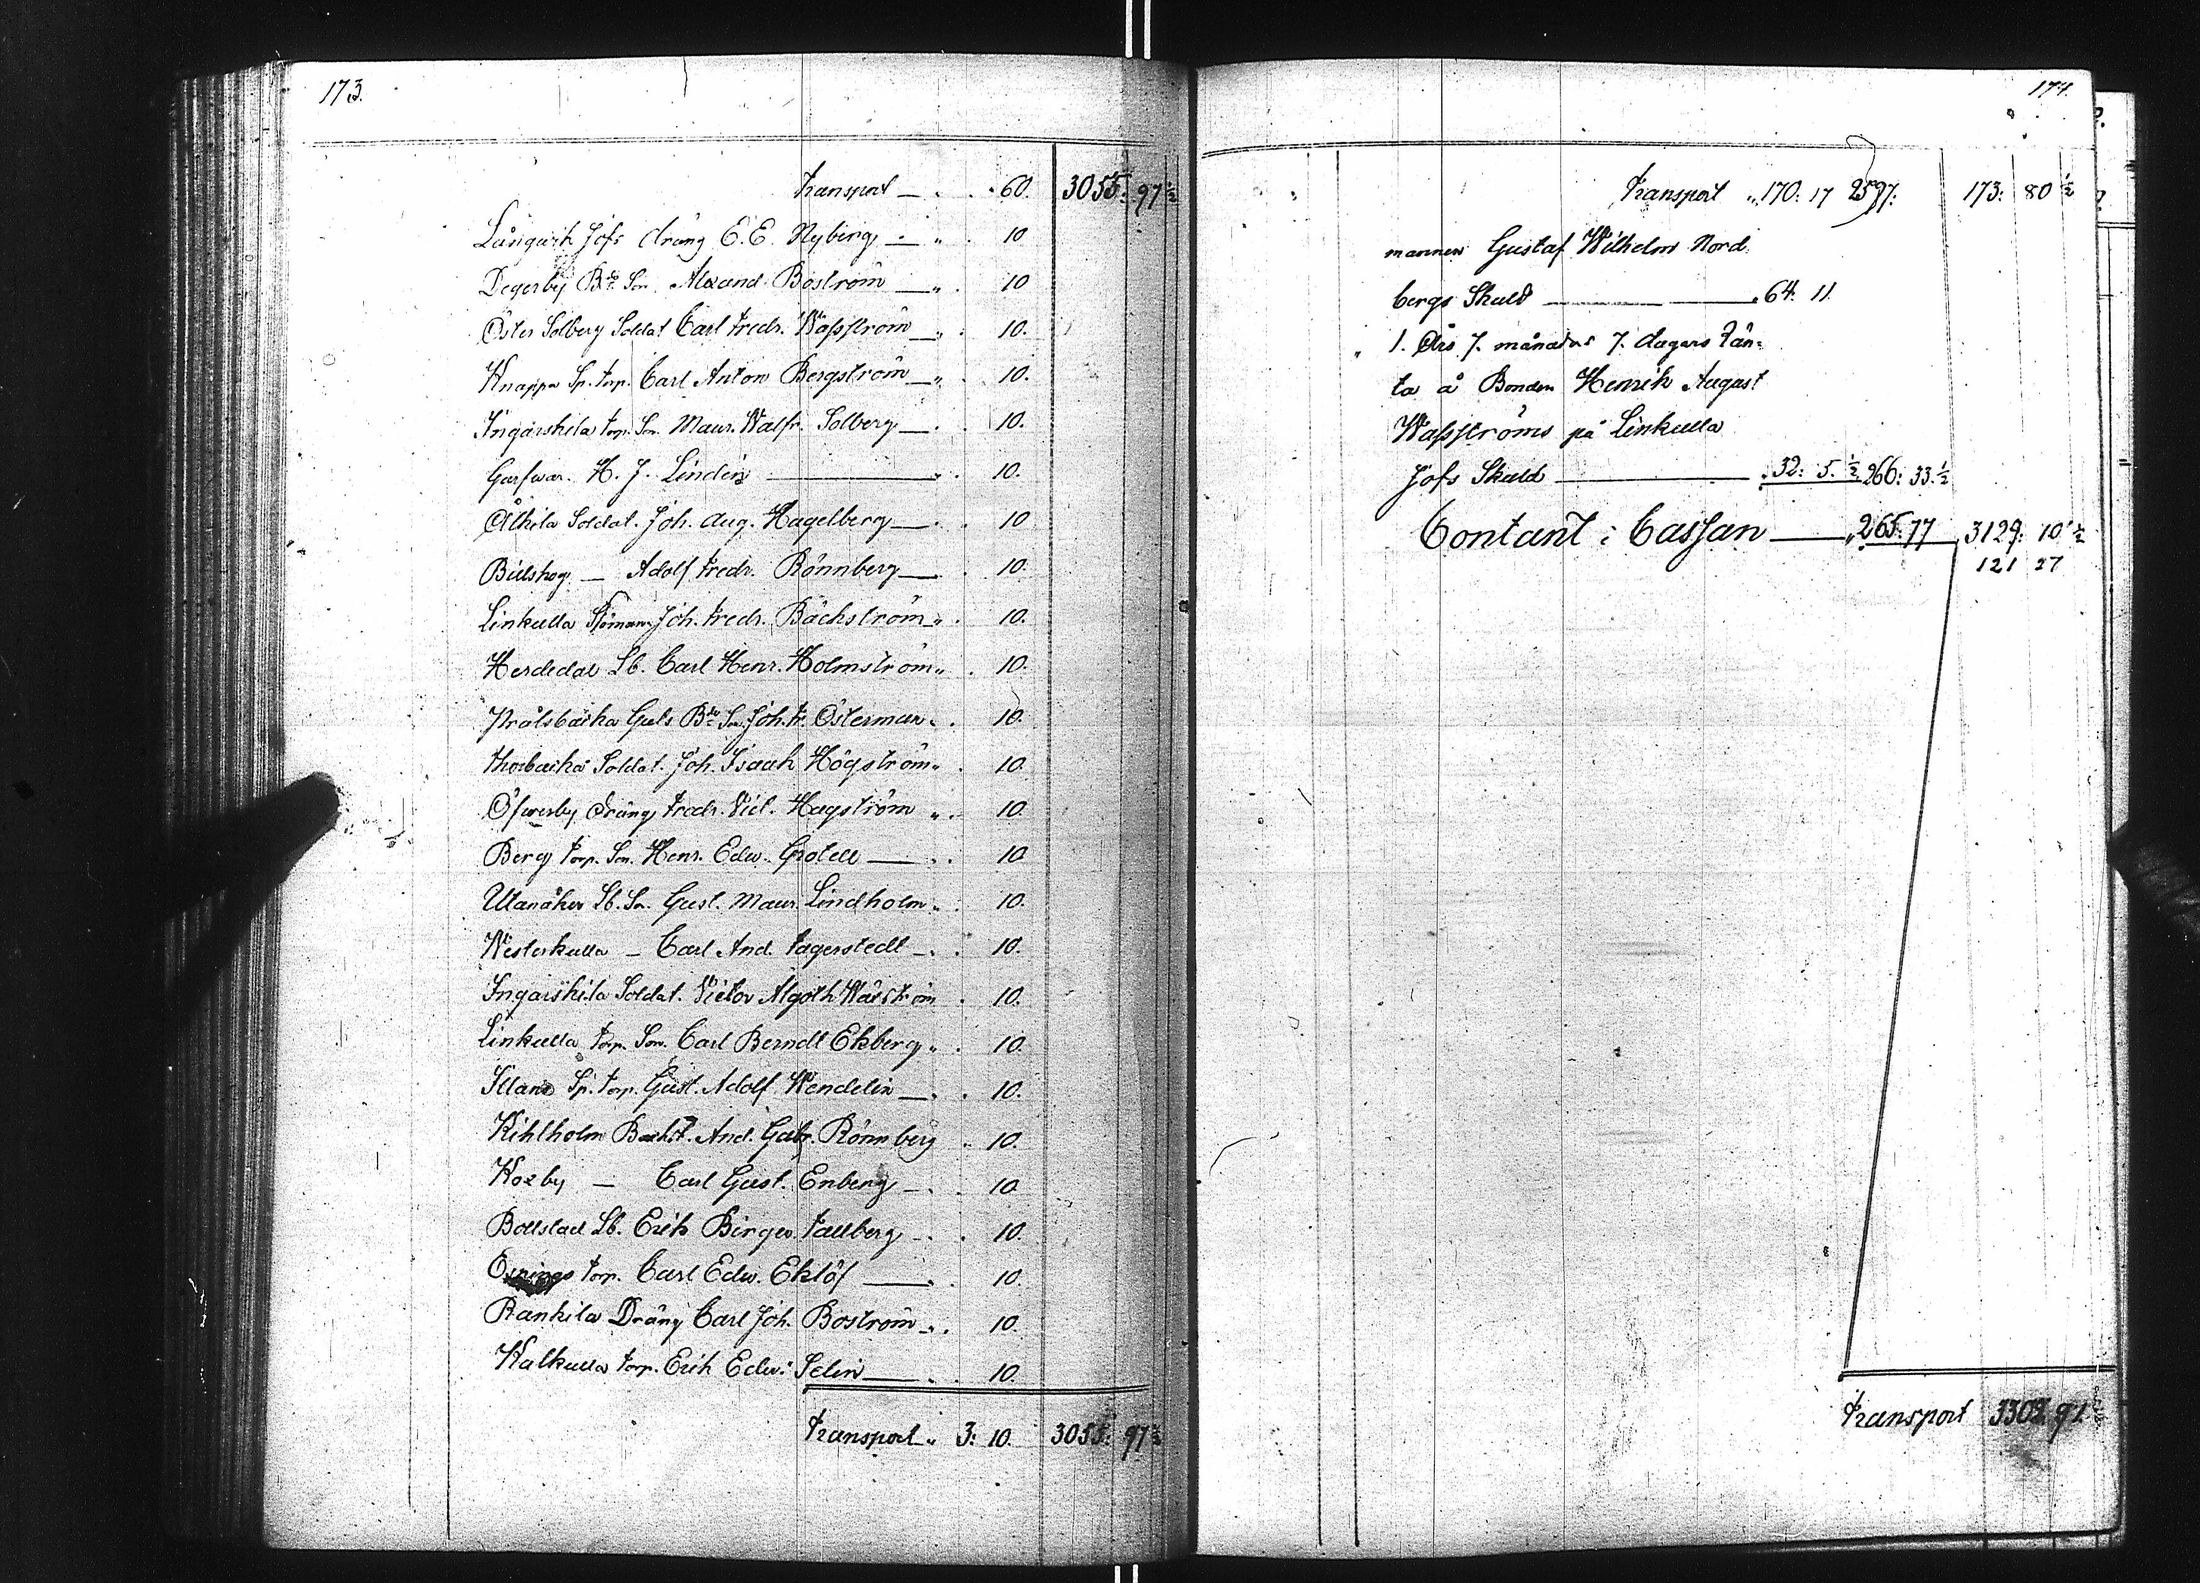 173.
Transport — 60. 3055: 97 1/2
Långwik Jofs dräng E. E. Nyberg — " 10
Degerby Bde Son Alexand. Boström — " 10
Öster Solberg Soldat Carl Fredr. Wasström — " 10.
Knappa Sp. torp. Carl Anton Bergström — " 10.
Ingarskila torp. Son. Maur. Walfr. Solberg — . 10.
H. J. Lindén — " 10.
Ålkila Soldat. Joh. Aug. Hagelberg — . 10
Bilskog — Adolf Fredr. Rönnberg — . 10.
Linkulla Joh. Fredr. Bäckström " . 10.
Herdedal Lb. Carl Henr. Holmström " . 10.
Bde Son. Joh. Fr. Österman " . 10.
Thorbacka Soldat. Joh. Isaak Högström " . 10.
Öfwerby dräng Fredr. Vict. Hagström " . 10.
Berg torp. Son. Henr. Edw. Grotell — . 10
Utanåker Lb. Son. Gust. Maur. Lindholm " . 10.
Westerkulla — Carl And. Fagerstedt — . 10.
Ingarskila Soldat. Victor Algoth Wärström . 10.
Linkulla torp. Son. Carl Berndt Ekberg " . 10.
Sp. torp. Gust. Adolf Wendelin — . 10.
Kihlholm Backst. And. Gabr. Rönnberg . 10.
Koxby — Carl Gust. Enberg — . 10
Bollstad Lb. Erik Birger Tallberg — . 10.
torp. Carl Edw. Eklöf — . 10.
Rankila Dräng Carl Joh. Boström " . 10.
Kalkulla torp. Erik Edw. Selin — . 10.
Transport " 3: 10. 3055: 97 1/2
174.
Transport " 170: 17 2597: 173: 80 1/2
mannen Gustaf Wilhelm Nord
bergs Skuld — " 64. 11.
" 1. Års 7. månaders 7. dagars Rän-
ta å Bonden Henrik August
Wasströms på Linkulla
Jofs Skuld — " 32: 5. 1/2 266: 33. 1/2
Contant i Cassan — " 265: 77 3129: 10 1/2
121 27
Transport 3302 91.